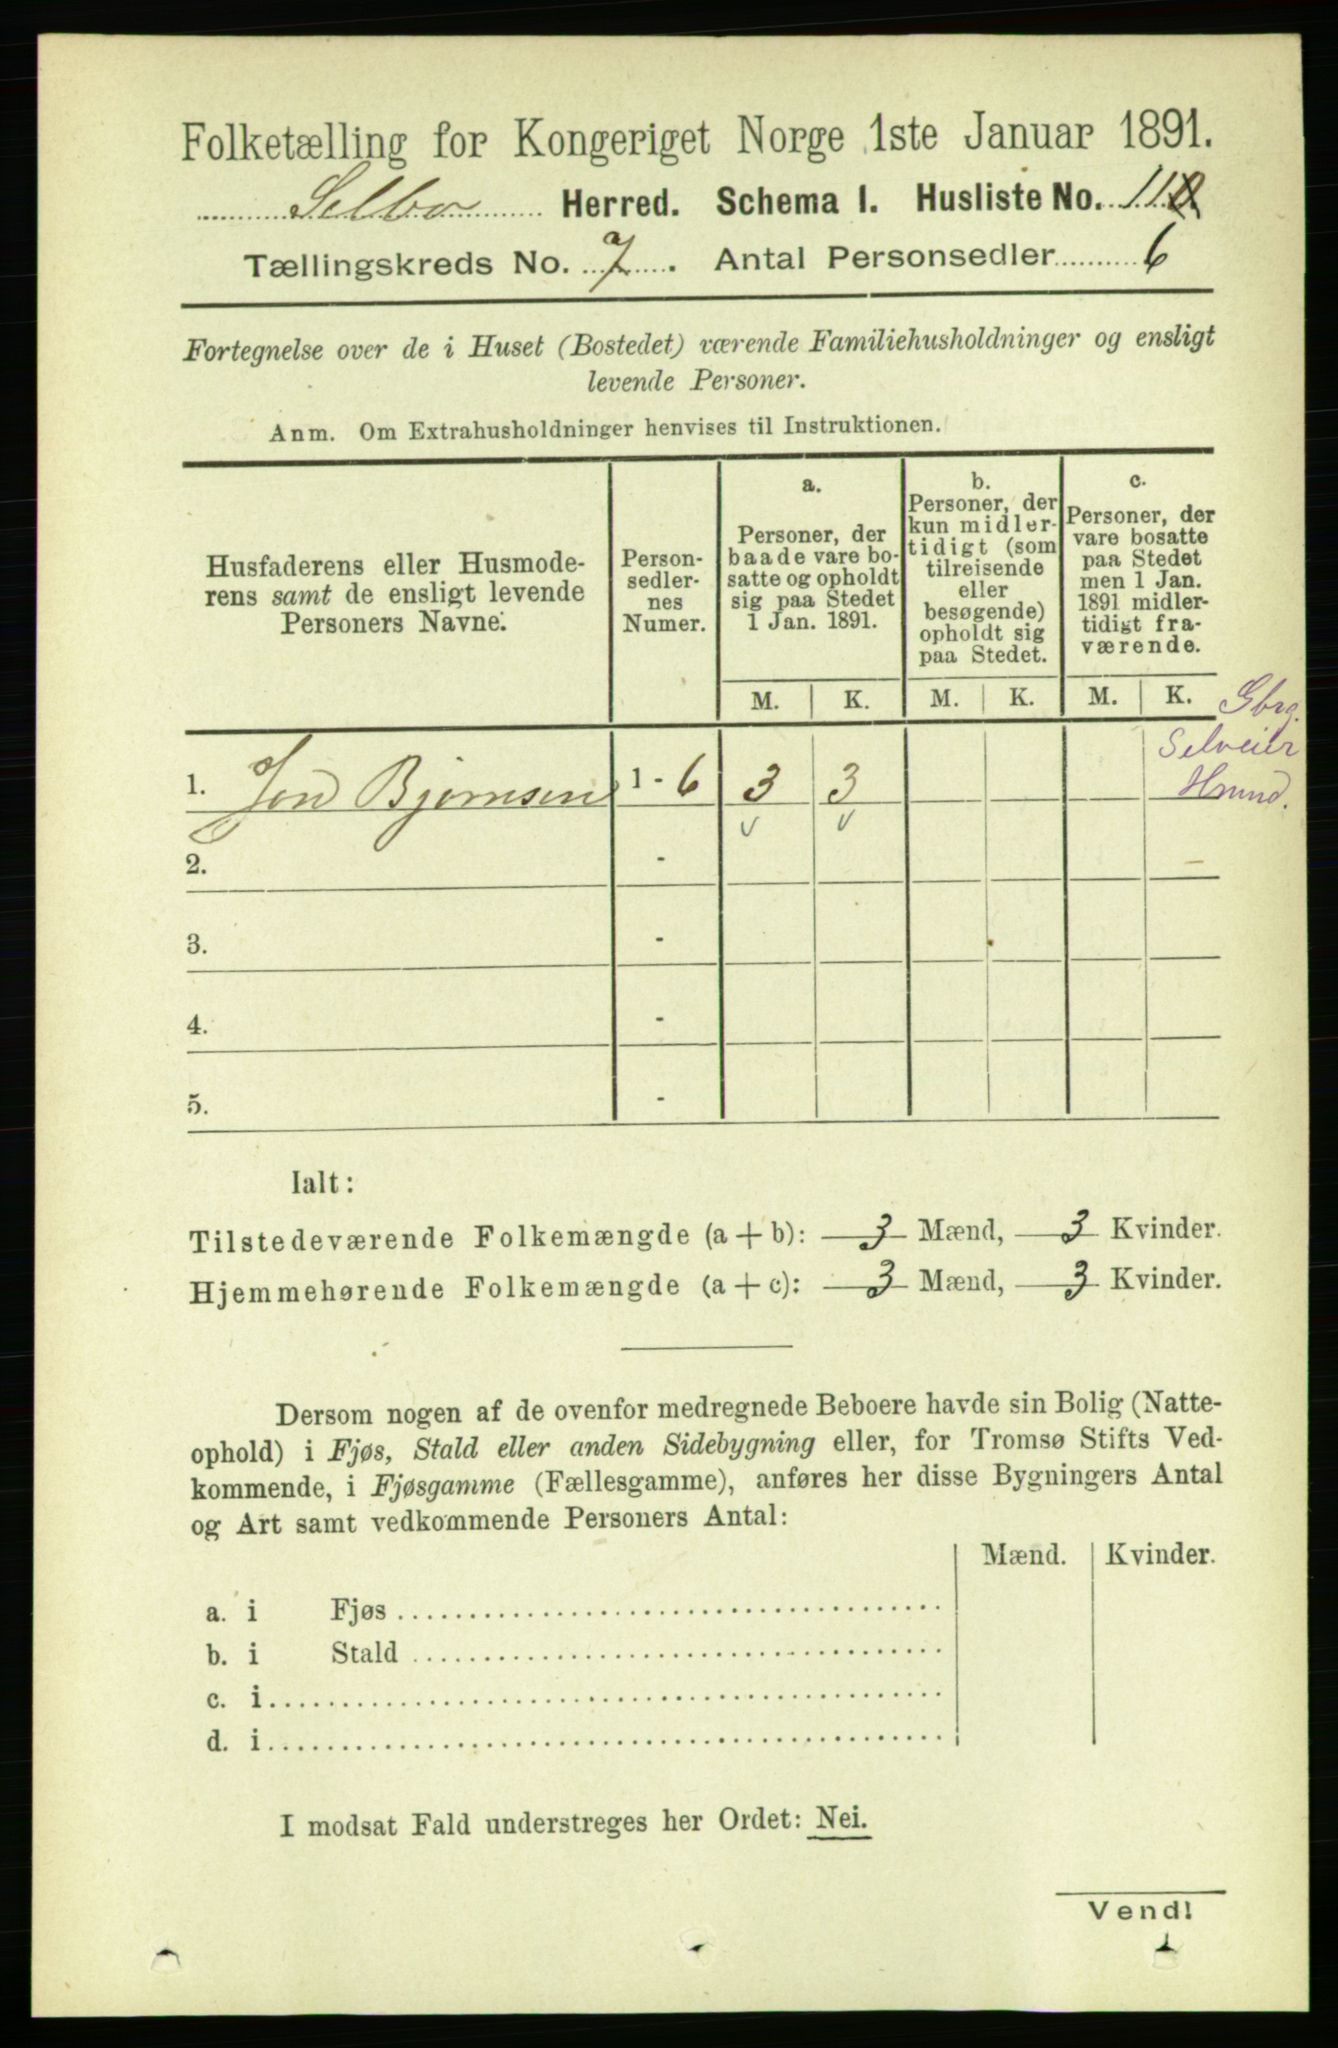 Folketælling for Kongeriget Norge 1ste Januar 1891.
Selbo Herred. Schema I. Husliste No. 110
Tællingskreds No. 7. Antal Personsedler 6
Fortegnelse over de i Huset (Bostedet) værende Familiehusholdninger og ensligt
levende Personer.
Anm. Om Extrahusholdninger henvises til Instruktionen.
Husfaderens eller Husmode-
rens samt de ensligt levende
Personers Navne.
Person-
sedler-
nes
Numer.
a.
Personer, der
baade vare bo-
satte og opholdt
sig paa Stedet
1 Jan. 1891.
b.
Personer, der
kun midler-
tidigt (som
tilreisende
eller
besøgende)
opholdt sig
paa Stedet.
c.
Personer, der
vare bosatte
paa Stedet
men 1 Jan.
1891 midler-
tidigt fra-
værende.
M. K. M. K. M. K.
Gbrg.
Selveier
Hmnd.
1. Jon Bjørnsen 1 - 6 3 3
2. -
3. -
4. -
5. -
Ialt:
Tilstedeværende Folkemængde (a + b): 3 Mænd, 3 Kvinder.
Hjemmehørende Folkemængde (a + c): 3 Mænd, 3 Kvinder.
Dersom nogen af de ovenfor medregnede Beboere havde sin Bolig (Natte-
ophold) i Fjøs, Stald eller anden Sidebygning eller, for Tromsø Stifts Ved-
kommende, i Fjøsgamme (Fællesgamme), anføres her disse Bygningers Antal
og Art samt vedkommende Personers Antal:
Mænd. Kvinder.
a. i Fjøs
b. i Stald
c. i
d. i
I modsat Fald understreges her Ordet: Nei.
Vend!